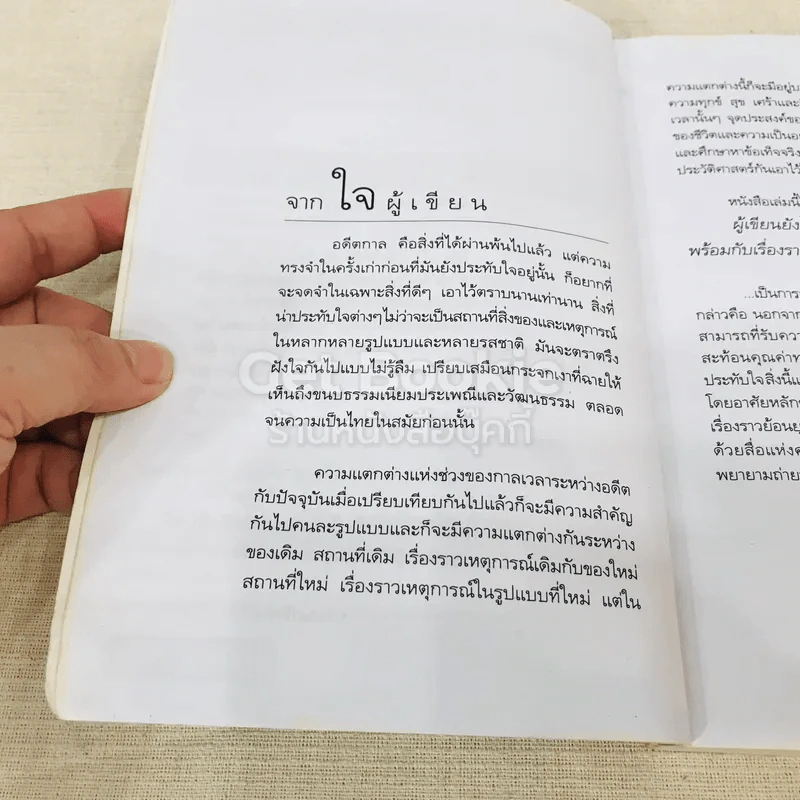 จาก ใจ ผู้เขียน
อดีตกาล คือสิ่งที่ได้ผ่านพ้นไปแล้ว แต่ความ
ทรงจำในครั้งเก่าก่อนที่มันยังประทับใจอยู่นั้น ก็อยากที่
จะจดจำในเฉพาะสิ่งที่ดีๆ เอาไว้ตราบนานเท่านาน สิ่งที่
น่าประทับใจต่างๆไม่ว่าจะเป็นสถานที่สิ่งของและเหตุการณ์
ในหลากหลายรูปแบบและหลายรสชาติ มันจะตราตรึง
ฝังใจกันไปแบบไม่รู้ลืม เปรียบเสมือนกระจกเงาที่ฉายให้
เห็นถึงขนบธรรมเนียมประเพณีและวัฒนธรรม ตลอด
จนความเป็นไทยในสมัยก่อนนั้น
ความแตกต่างแห่งช่วงของกาลเวลาระหว่างอดีต
กับปัจจุบันเมื่อเปรียบเทียบกันไปแล้วก็จะมีความสำคัญ
กันไปคนละรูปแบบและก็จะมีความแตกต่างกันระหว่าง
ของเดิม สถานที่เดิม เรื่องราวเหตุการณ์เดิมกับของใหม่
สถานที่ใหม่ เรื่องราวเหตุการณ์ในรูปแบบที่ใหม่ แต่ใน
ความแตกต่างนี้ก็จะมีอยู่
ความทุกข์ สุข เศร้าและ
เวลานั้นๆ จุดประสงค์
ของชีวิตและความเป็น
และศึกษาหาข้อเท็จจริง
ประวัติศาสตร์กันเอาไว้
หนังสือเล่มนี้
ผู้เขียนยัง
พร้อมกับเรื่อง
...เป็นการ
กล่าวคือ นอกจาก
สามารถที่รับความ
สะท้อนคุณค่า
ประทับใจสิ่งนี้
โดยอาศัยหลัก
เรื่องราวย้อน
ด้วยสื่อแห่ง
พยายามถ่าย
Get Bookie
ร้านหนังสือบุ๊คกี้